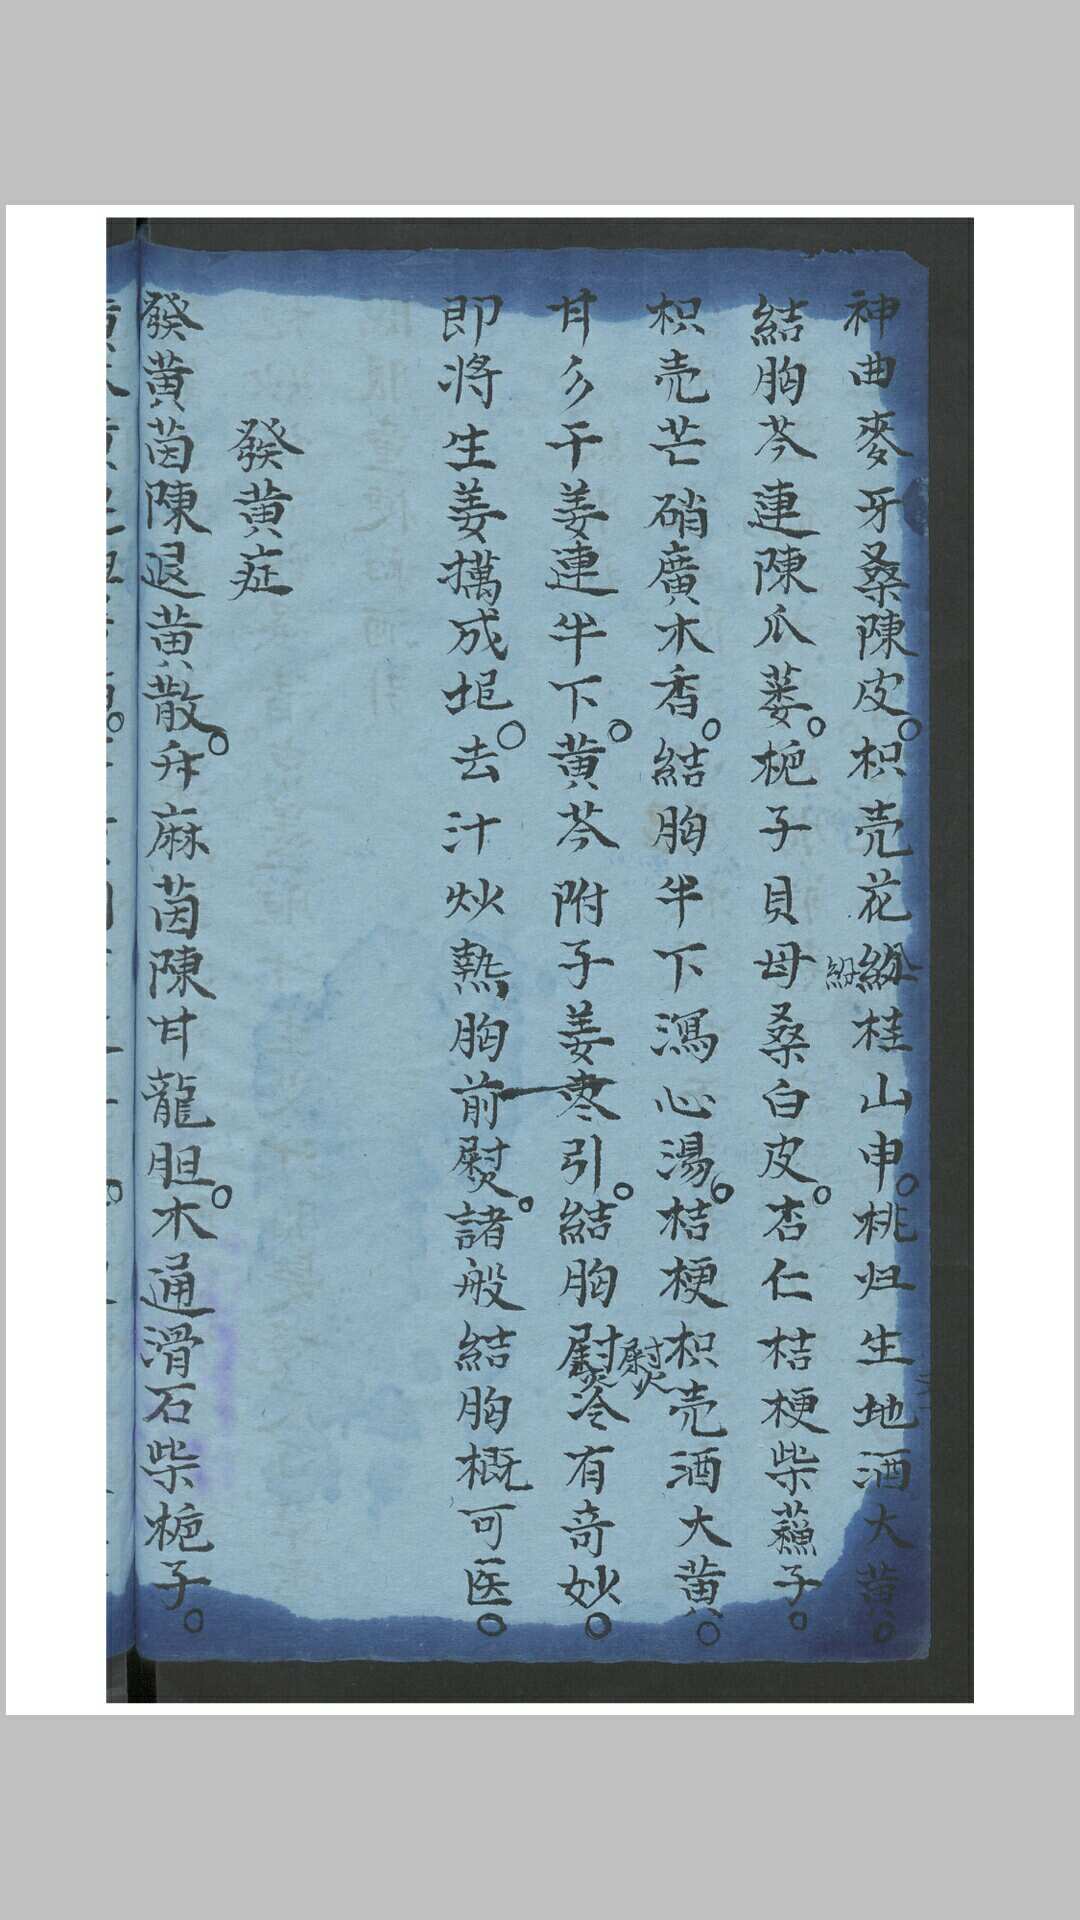 神曲麥牙桑陳皮。枳壳花紛桂山申。桃归生地酒大黄。
紛
結胸芩連陳瓜蒌。栀子貝母桑白皮。杏仁桔梗柴蘓子。
枳壳芒硝廣木香。結胸半下瀉心湯。桔梗枳壳酒大黄。
熨
甘彡干姜連半下。黄芩附子姜枣引。結胸熨冷有奇妙。
即将生姜擣成垊。去汁炒热胸前熨。諸般結胸概可医。
發黄症
發黄茵陳退黄散。升麻茵陳甘龍胆。木通滑石柴栀子。